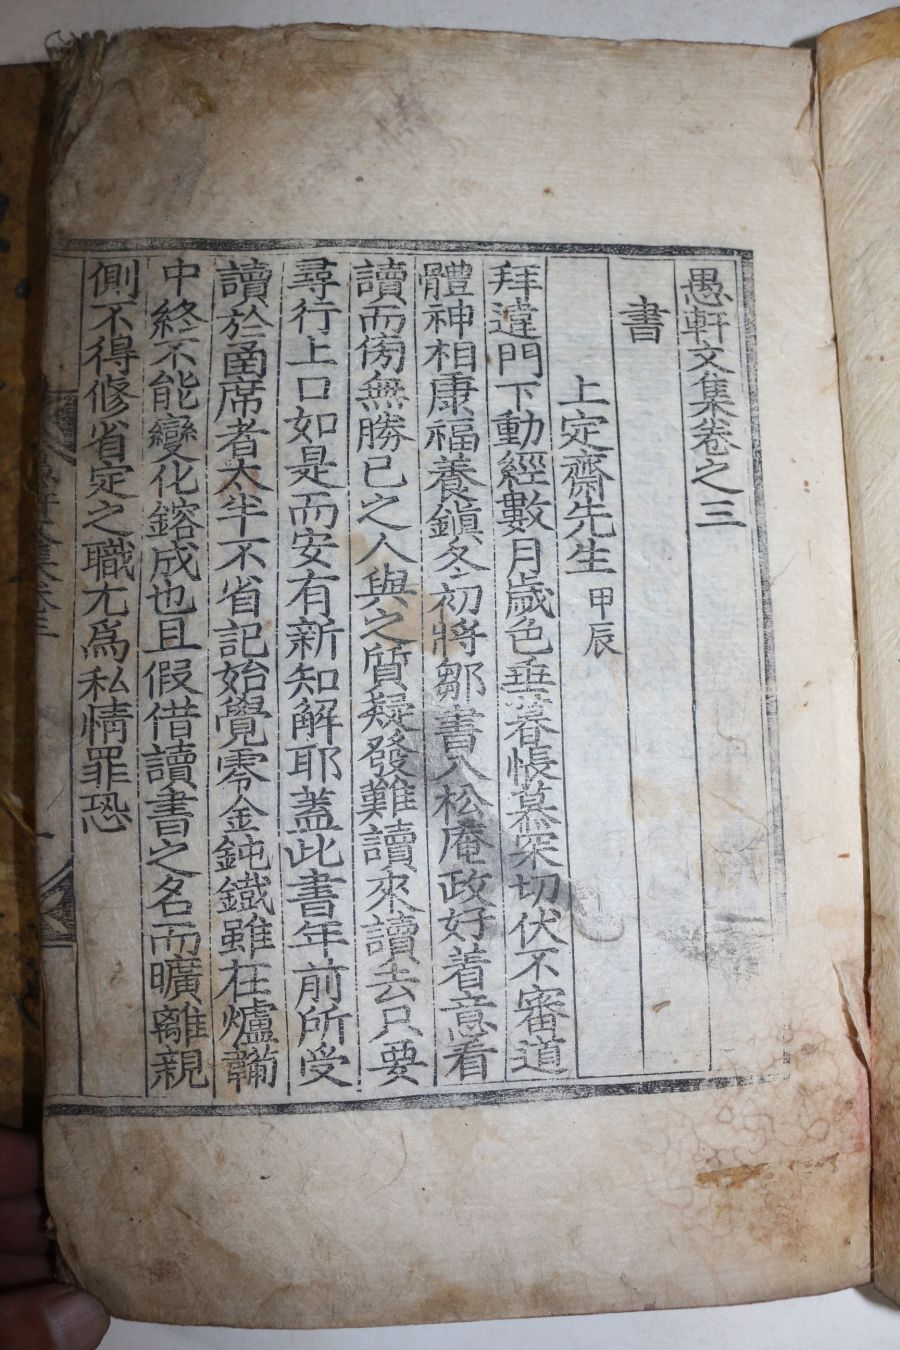 愚軒文集卷之三
書
上定齋先生 甲辰
拜違門下動經數月歲色垂暮悵慕深切伏不審道
體神相康福養鎭冬初將鄒書入松庵政好着意看
讀而傍無勝已之人與之質疑發難讀來讀去只要
尋行上口如是而安有新知解耶蓋此書年前所受
讀於凾席者太半不省記始覺零金鈍鐵雖在爐鞴
中終不能變化鎔成也且假借讀書之名而曠離親
側不得修省定之職尤爲私情罪恐